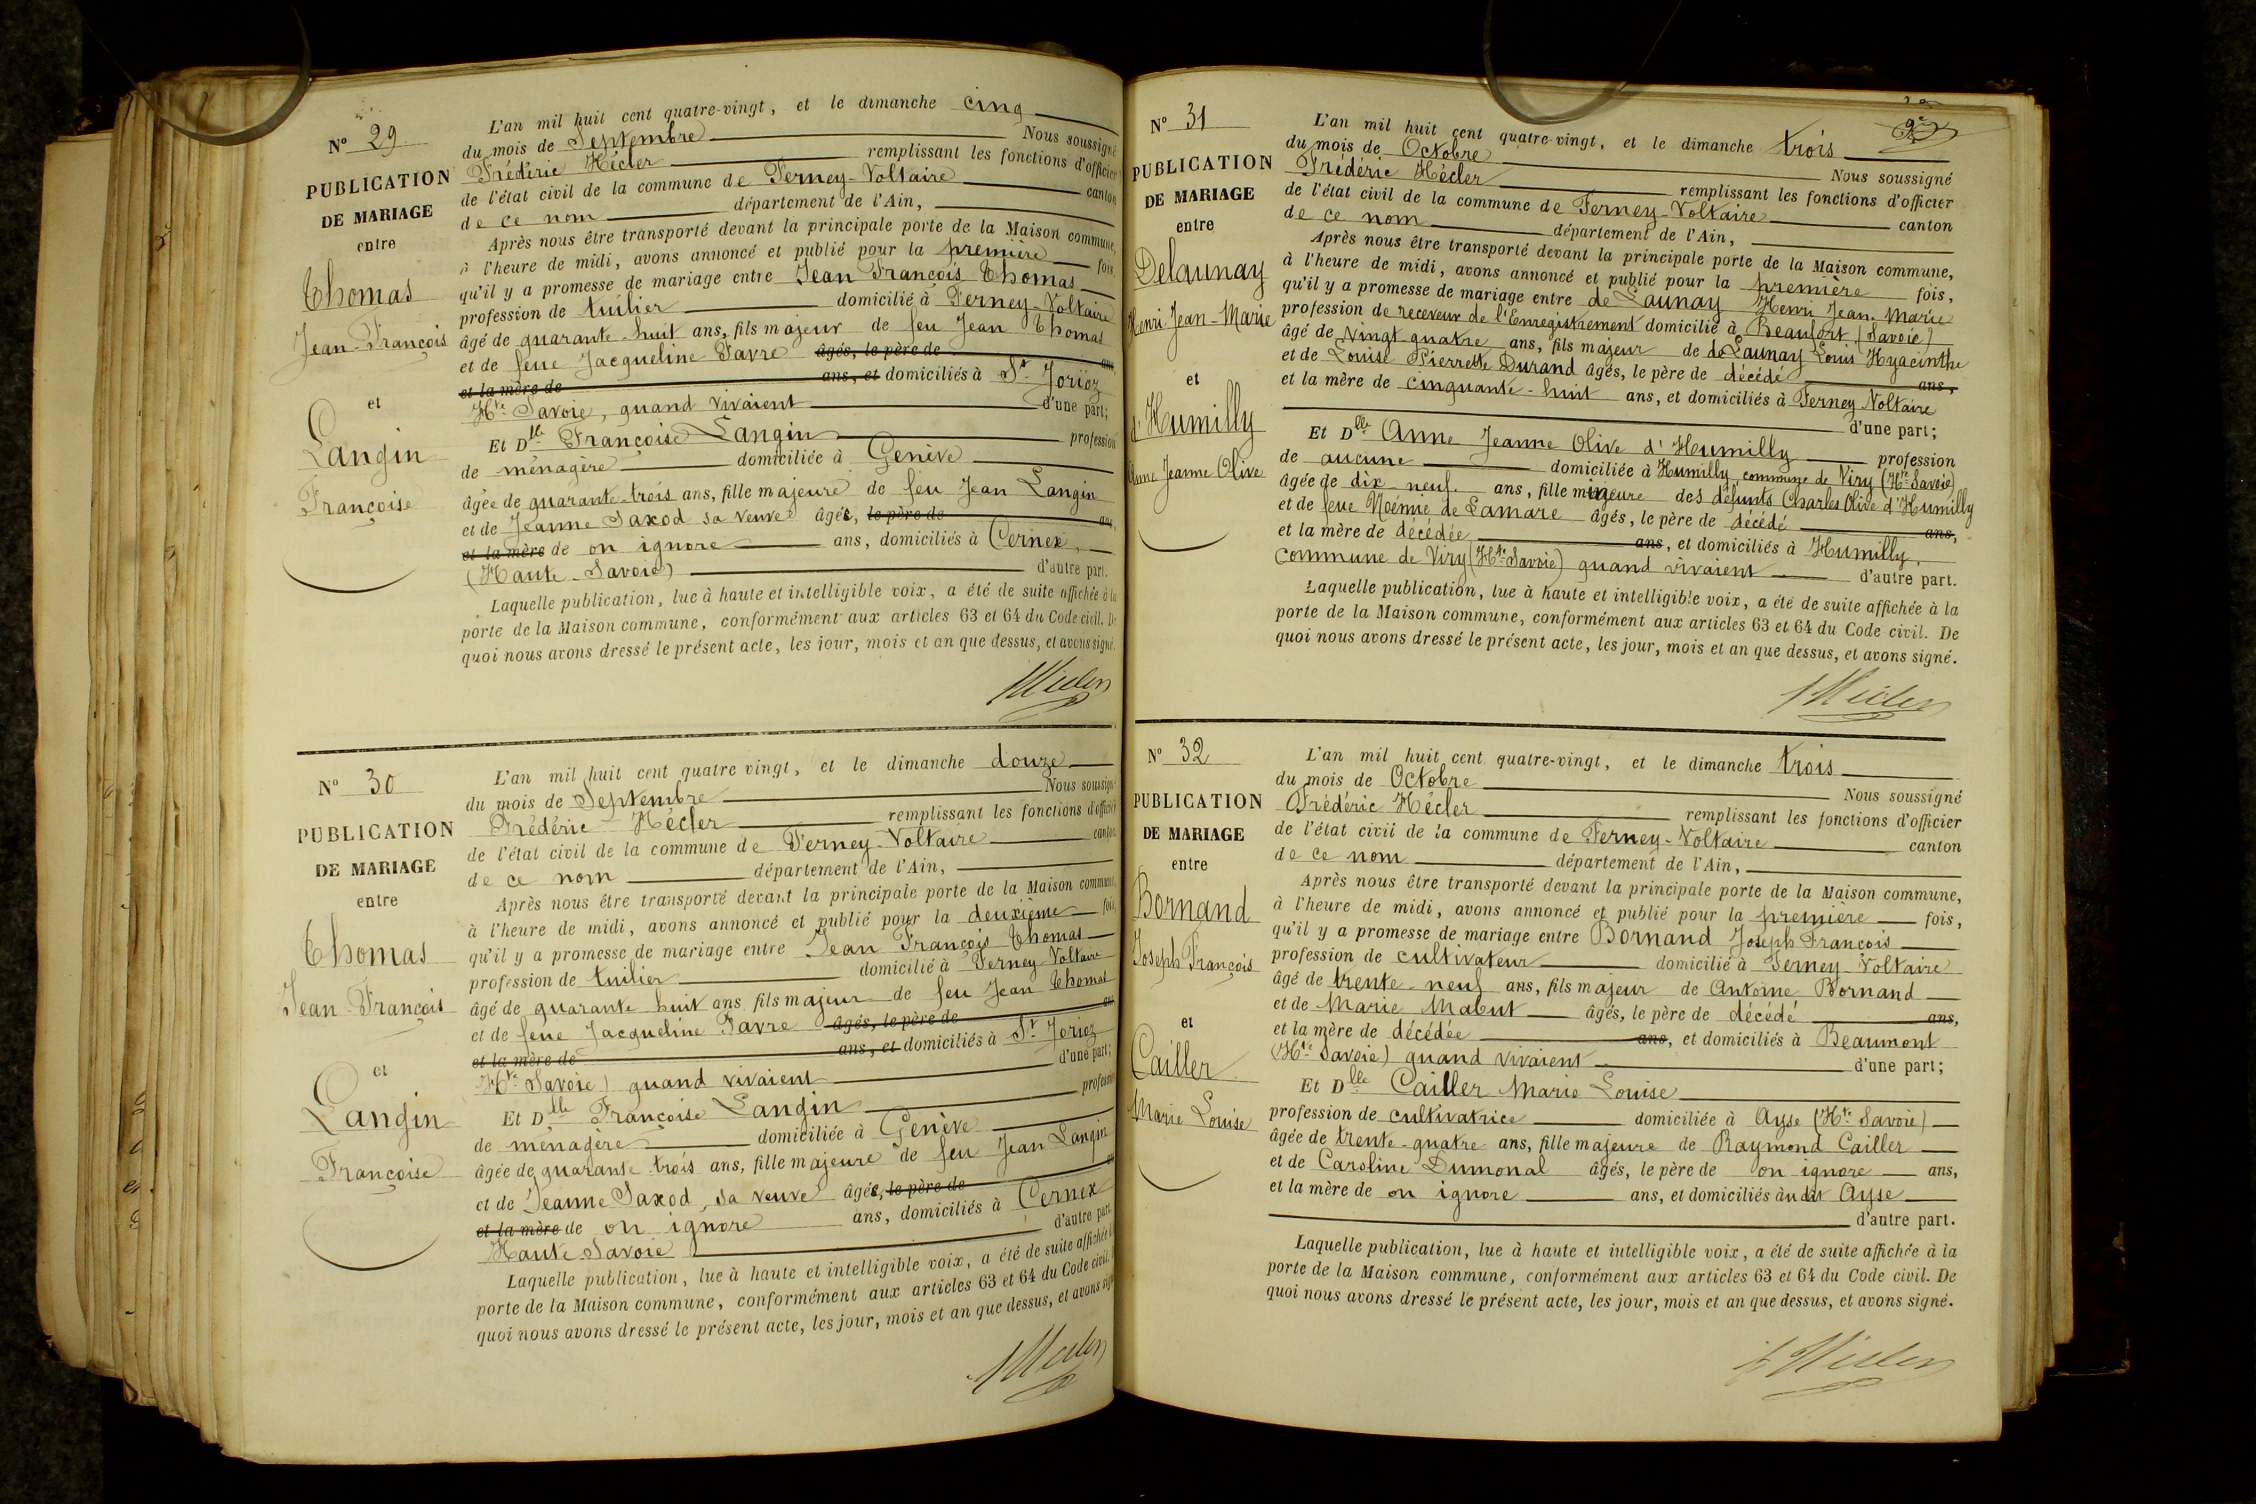 N° 29
PUBLICATION
DE MARIAGE
entre
Thomas
Jean-François
et
Langin
Françoise
L'an mil huit cent quatre-vingt, et le dimanche cinq
du mois de Septembre Nous soussigné
Frédéric Hécler remplissant les fonctions d'officier
de l'état civil de la commune de Ferney-Voltaire canton
de ce nom département de l'Ain,
Après nous être transporté devant la principale porte de la Maison commune,
à l'heure de midi, avons annoncé et publié pour la première fois,
qu'il y a promesse de mariage entre Jean François Thomas
profession de tuilier domicilié à Ferney-Voltaire
âgé de quarante-huit ans, fils majeur de feu Jean Thomas
et de feue Jacqueline Favre âgés, le père de ans,
et la mère de ans, et domiciliés à St. Jorioz
Hte Savoie, quand vivaient d'une part;
Et Dlle Françoise Langin profession
de ménagère domiciliée à Genève
âgée de quarante-trois ans, fille majeure de feu Jean Langin
et de Jeanne Saxod sa veuve âgée, le père de ans,
et la mère de on ignore ans, domiciliés à Cernex,
(Haute-Savoie) d'autre part.
Laquelle publication, lue à haute et intelligible voix, a été de suite affichée à la
porte de la Maison commune, conformément aux articles 63 et 64 du Code civil. De
quoi nous avons dressé le présent acte, les jour, mois et an que dessus, et avons signé.
N° 30
PUBLICATION
DE MARIAGE
entre
Thomas
Jean François
et
Langin
Françoise
L'an mil huit cent quatre vingt, et le dimanche douze
du mois de Septembre Nous soussigné
Frédéric Hécler remplissant les fonctions d'officier
de l'état civil de la commune de Ferney-Voltaire canton
de ce nom département de l'Ain,
Après nous être transporté devant la principale porte de la Maison commune,
à l'heure de midi, avons annoncé et publié pour la deuxième fois,
qu'il y a promesse de mariage entre Jean François Thomas
profession de tuilier domicilié à Ferney Voltaire
âgé de quarante huit ans fils majeur de feu Jean Thomas
et de feue Jacqueline Favre âgés, le père de ans
et la mère de ans, et domiciliés à St. Jorioz
Hte Savoie) quand vivaient d'une part;
Et Dlle Françoise Langin profession
de ménagère domiciliée à Genève
âgée de quarante trois ans, fille majeure de feu Jean Langin
et de Jeanne Saxod, sa veuve âgée, le père de ans
et la mère de on ignore ans, domiciliés à Cernex
Haute-Savoie d'autre part.
Laquelle publication, lue à haute et intelligible voix, a été de suite affichée à la
porte de la Maison commune, conformément aux articles 63 et 64 du Code civil. De
quoi nous avons dressé le présent acte, les jour, mois et an que dessus, et avons signé
N° 31
PUBLICATION
DE MARIAGE
entre
Delaunay
Henri Jean-Marie
et
d'Humilly
Anne Jeanne Olive
L'an mil huit cent quatre-vingt, et le dimanche trois
du mois de Octobre Nous soussigné
Frédéric Hécler remplissant les fonctions d'officier
de l'état civil de la commune de Ferney-Voltaire canton
de ce nom département de l'Ain,
Après nous être transporté devant la principale porte de la Maison commune,
à l'heure de midi, avons annoncé et publié pour la première fois,
qu'il y a promesse de mariage entre de Launay Henri Jean-Marie
profession de receveur de l'Enregistrement domicilié à Beaufort (Savoie)
âgé de vingt quatre ans, fils majeur de de Launay Louis Hyacinthe
et de Louise Pierrette Durand âgés, le père de décédé ans,
et la mère de cinquante-huit ans, et domiciliés à Ferney Voltaire
d'une part;
Et Dlle Anne Jeanne Olive d'Humilly profession
de aucune domiciliée à Humilly, commune de Viry (Hte Savoie)
âgée de dix-neuf ans, fille mineure des défunts Charles Olive d'Humilly
et de feue Noémie de Lamare âgés, le père de décédé ans,
et la mère de décédée ans, et domiciliés à Humilly,
commune de Viry (Hte Savoie) quand vivaient d'autre part.
Laquelle publication, lue à haute et intelligible voix, a été de suite affichée à la
porte de la Maison commune, conformément aux articles 63 et 64 du Code civil. De
quoi nous avons dressé le présent acte, les jour, mois et an que dessus, et avons signé.
N° 32
PUBLICATION
DE MARIAGE
entre
Bornand
Joseph François
et
Cailler
Marie Louise
L'an mil huit cent quatre-vingt, et le dimanche trois
du mois de Octobre Nous soussigné
Frédéric Hécler remplissant les fonctions d'officier
de l'état civil de la commune de Ferney-Voltaire canton
de ce nom département de l'Ain,
Après nous être transporté devant la principale porte de la Maison commune,
à l'heure de midi, avons annoncé et publié pour la première fois,
qu'il y a promesse de mariage entre Bornand Joseph François
profession de cultivateur domicilié à Ferney Voltaire
âgé de trente-neuf ans, fils majeur de Antoine Bornand
et de Marie Mabut âgés, le père de décédé ans,
et la mère de décédée ans, et domiciliés à Beaumont
(Hte Savoie) quand vivaient d'une part;
Et Dlle Cailler Marie Louise
profession de cultivatrice domiciliée à Ayse (Hte Savoie)
âgée de trente-quatre ans, fille majeure de Raymond Cailler
et de Caroline Dumonal âgés, le père de on ignore ans,
et la mère de on ignore ans, et domiciliés audit Ayse
d'autre part.
Laquelle publication, lue à haute et intelligible voix, a été de suite affichée à la
porte de la Maison commune, conformément aux articles 63 et 64 du Code civil. De
quoi nous avons dressé le présent acte, les jour, mois et an que dessus, et avons signé.